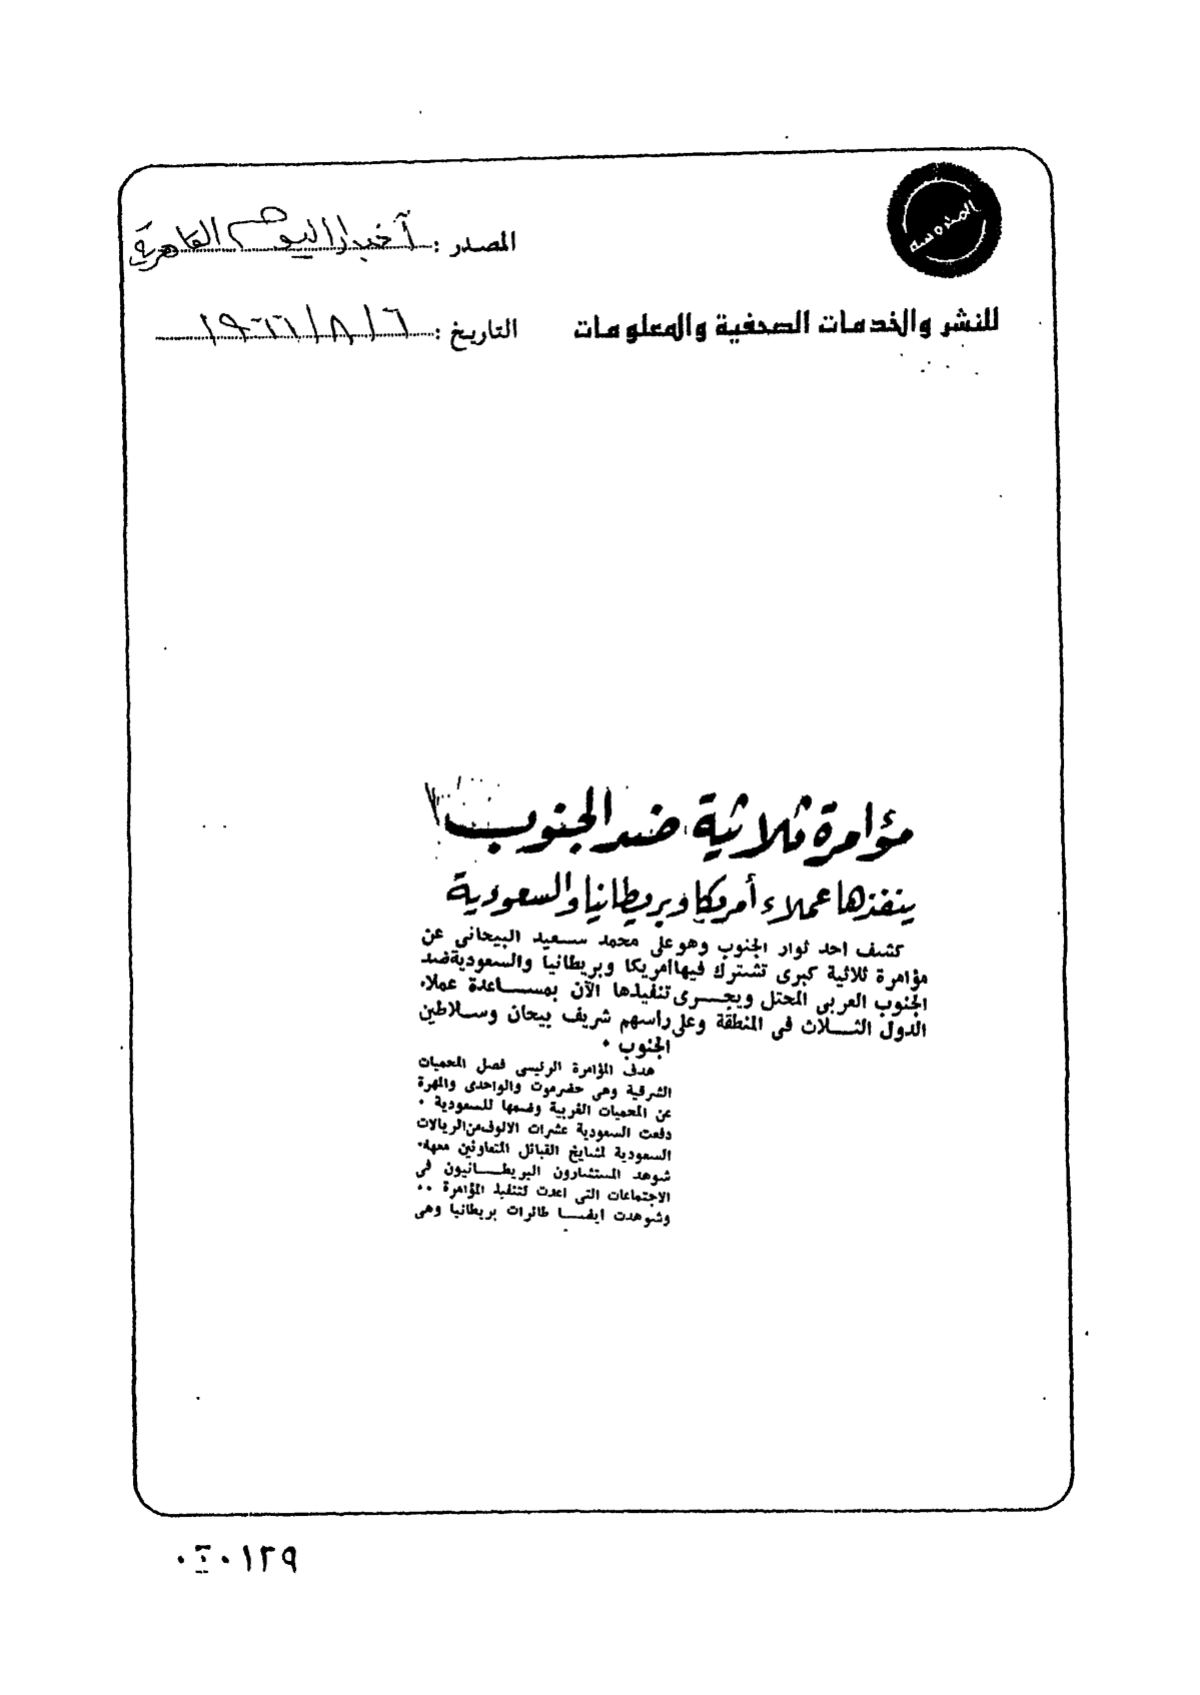 المحروسة
المصدر : آخبار اليوم القاهرية
للنشر والخدمات الصحفية والمعلومات
التاريخ : ١٩٦٦/٨/٦
مؤامرة ثلاثية ضد الجنوب
ينفذها عملاء أمريكا وبريطانيا والسعودية
كشف احد ثوار الجنوب وهو على محمد سعيد البيحانى عن
مؤامرة ثلاثية كبرى تشترك فيها امريكا وبريطانيا والسعودية ضد
الجنوب العربى المحتل ويجرى تنفيذها الآن بمساعدة عملاء
الدول الثلاث فى المنطقة وعلى رأسهم شريف بيحان وسلاطين
الجنوب .
هدف المؤامرة الرئيسى فصل المحميات
الشرقية وهى حضرموت والواحدى والمهرة
عن المحميات الغربية وضمها للسعودية .
دفعت السعودية عشرات الالوف من الريالات
السعودية لمشايخ القبائل المتعاونين معها.
شوهد المستشارون البريطانيون فى
الاجتماعات التى اعدت لتنفيذ المؤامرة ..
وشوهدت ايضا طائرات بريطانيا وهى